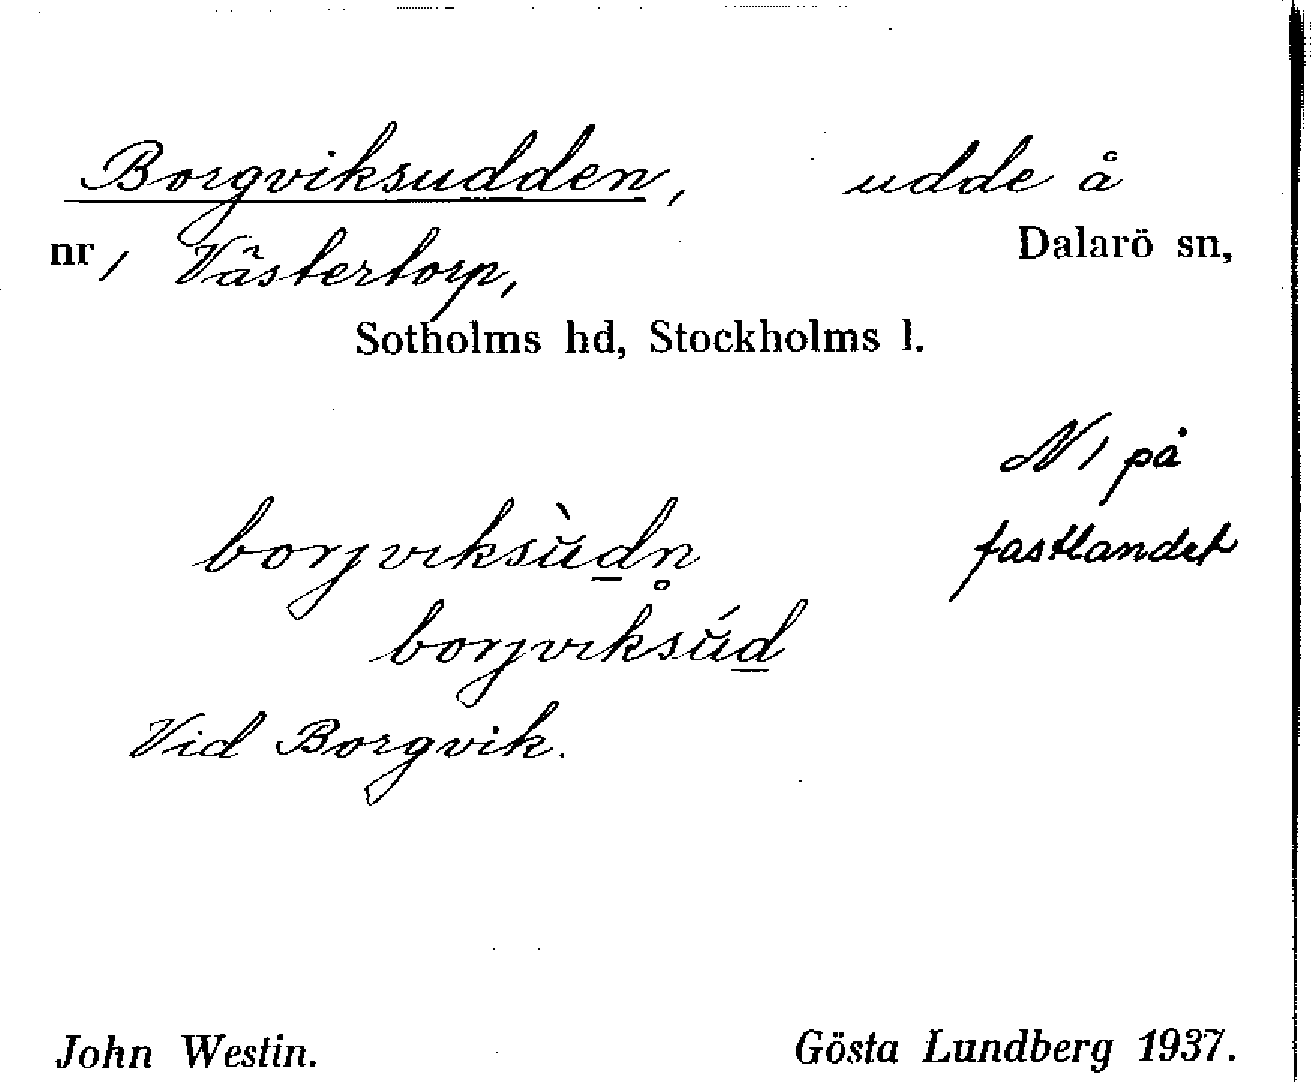 Borgviksudden, udde å
nr 1 Västertorp, Dalarö sn,
Sotholms hd, Stockholms l.
N 1 på
fastlandet
borjvıksu̇̀d̲n̥
borjvıksu̇́d̲
Vid Borgvik.
John Westin. Gösta Lundberg 1937.